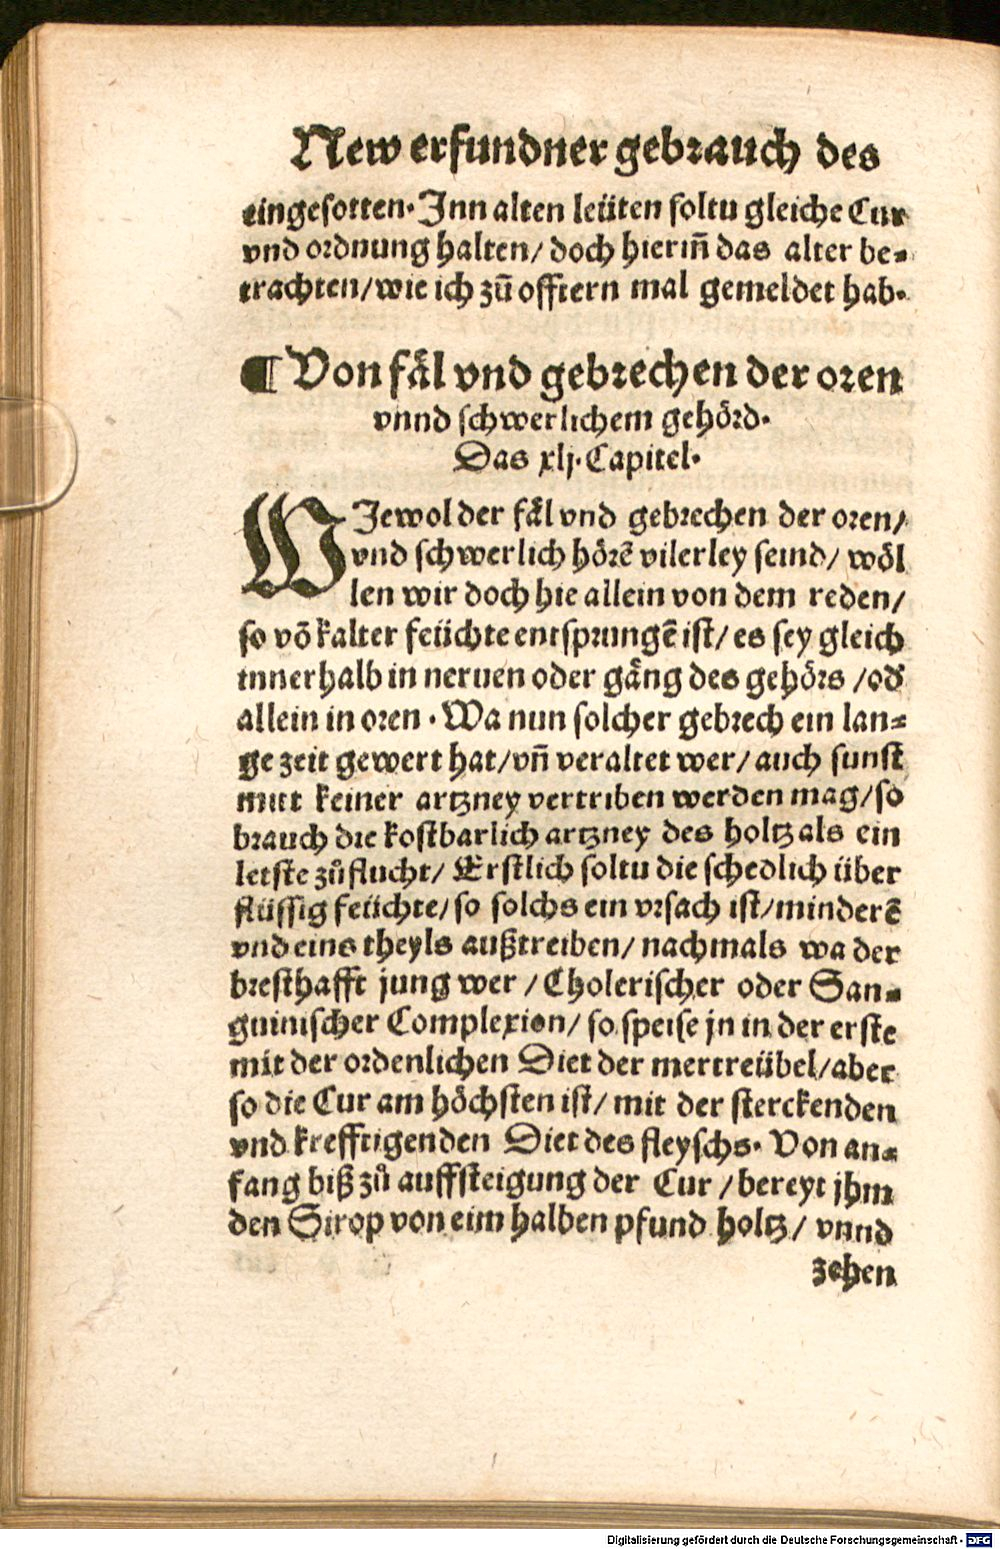 New erfundner gebrauch des
eingesotten. Inn alten leüten soltu gleiche Cur
vnd ordnung halten/ doch hierin̄ das alter be-
trachten/ wie ich zů offtern mal gemeldet hab.
¶ Von fäl vnd gebrechen der oren
vnnd schwerlichem gehörd.
Das xlj. Capitel.
WJewol der fäl vnd gebrechen der oren/
vnd schwerlich hörē vilerley seind/ wöl
len wir doch hie allein von dem reden/
so vō kalter feüchte entsprungē ist/ es sey gleich
innerhalb in neruen oder gäng des gehörs /od̛
allein in oren. Wa nun solcher gebrech ein lan-
ge zeit gewert hat/ vn̄ veraltet wer/ auch sunst
mitt keiner artzney vertriben werden mag/ so
brauch die kostbarlich artzney des holtz als ein
letste zůflucht/ Erstlich soltu die schedlich über
flüssig feüchte/ so solchs ein vrsach ist/ minderē
vnd eins theyls außtreiben/ nachmals wa der
bresthafft jung wer / Cholerischer oder San-
guinischer Complexion/ so speise jn in der erste
mit der ordenlichen Diet der mertreübel/ aber
so die Cur am höchsten ist/ mit der sterckenden
vnd krefftigenden Diet des fleyschs. Von an-
fang biß zů auffsteigung der Cur / bereyt jhm
den Sirop von eim halben pfund holtz/ vnnd
zehen
Digitalisierung gefördert durch die Deutsche Forschungsgemeinschaft - DFG